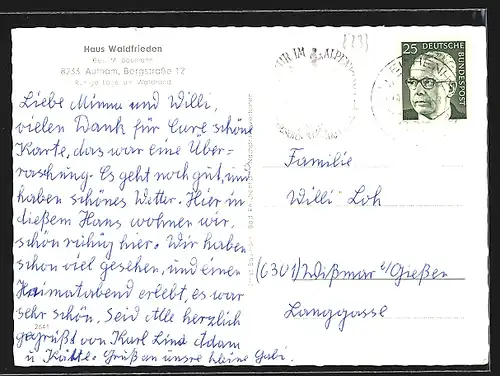 Haus Waldfrieden
8233 Aufham, Bergstraße 12
Ruhige Lage am Waldrand
Liebe Minna und Willi,
vielen Dank für Eure schöne
Karte, das war eine Über-
raschung. Es geht noch gut, und
haben schönes Wetter. Hier in
dießem Haus wohnen wir,
schön ruhig hier. Wir haben
schon viel gesehen, und einen
Heimatabend erlebt, es war
sehr schön. Seid Alle herzlich
gegrüßt von Karl Lina Adam
u Käthe. Gruß an unsre kleine Gabi.
2641
25 DEUTSCHE
BUNDESPOST
Familie
Willi Loh
(6301) Wißmar b/Gießen
Langgasse